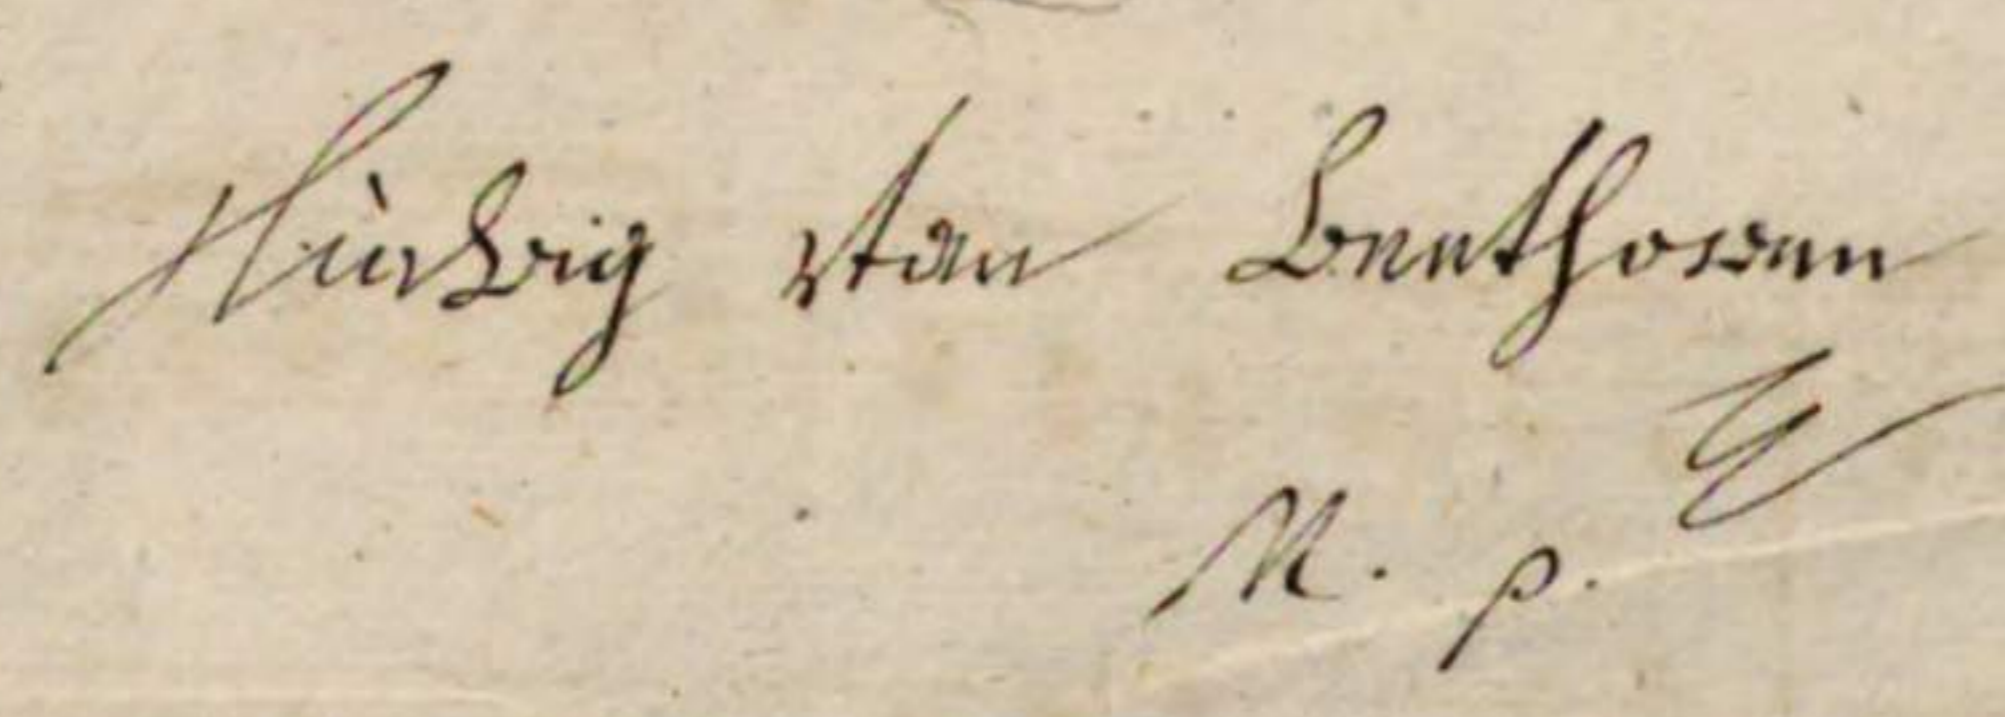 Ludwig van Beethoven
M. p.